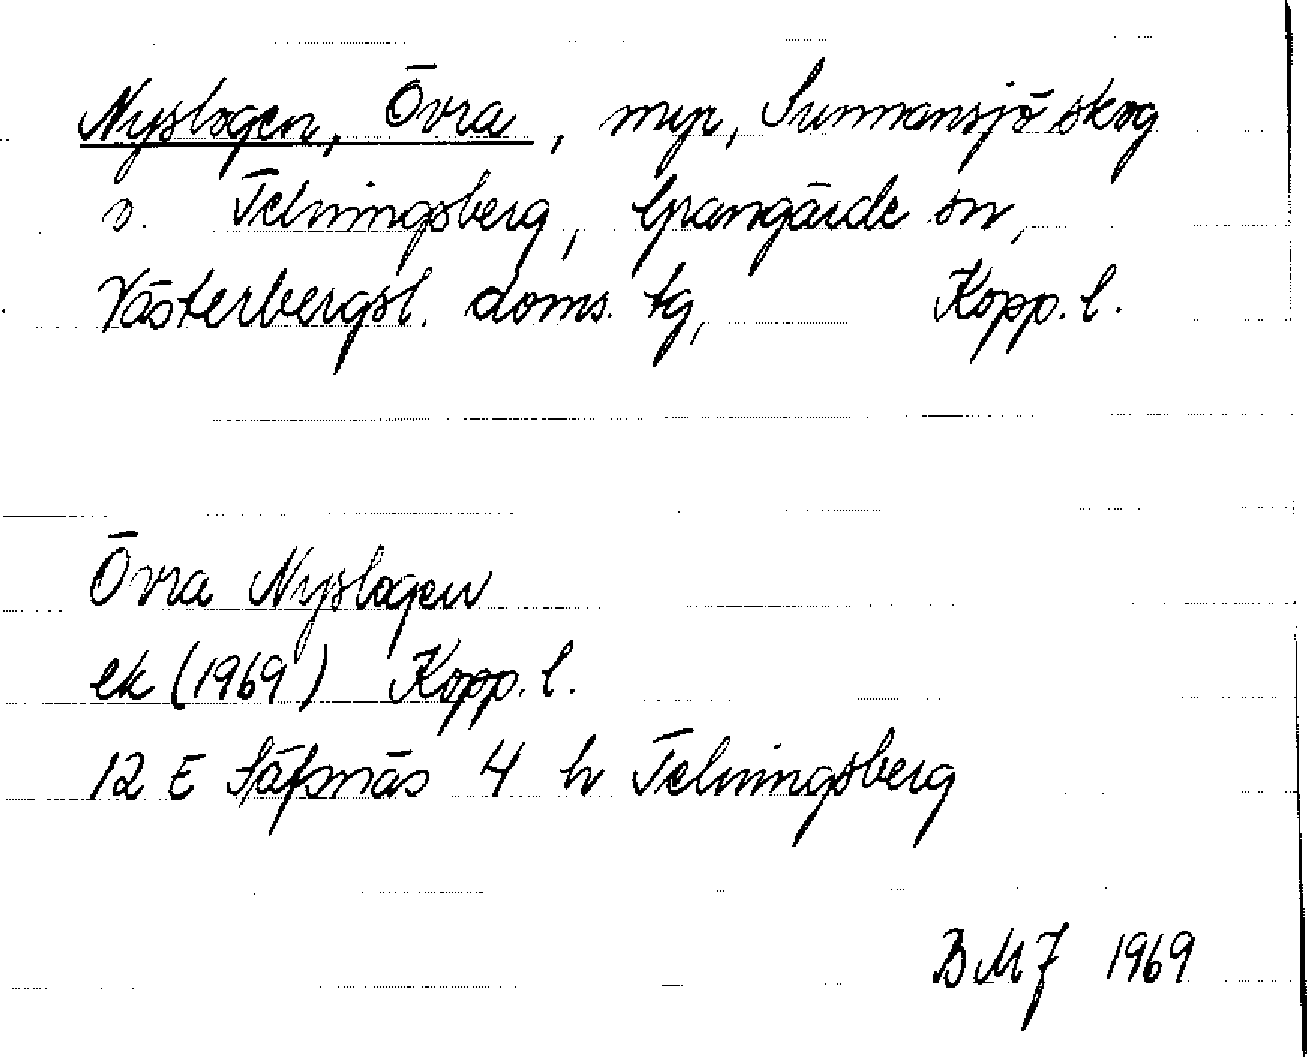 Nyslogen, Övra, myr, Sunnansjö skog
v. Telningsberg, Grangärde sn,
Västerbergsl. doms. tg, Kopp. l.
Övra Nyslogen
ek (1969) Kopp. l.
12 E Säfsnäs 4 h Telningsberg
BMJ 1969